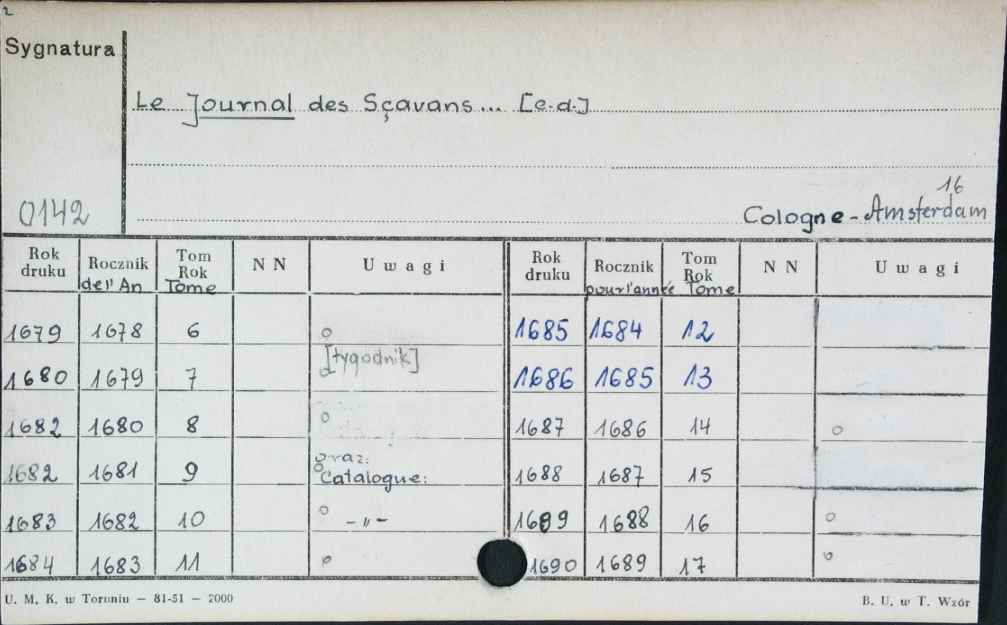 2
Sygnatura
Le Journal des Sçavans... [e.d.]
16
0142
Cologne - Amsterdam
Rok druku Rocznik Tom Rok N N Uwagi Rok druku Rocznik Tom Rok N N Uwagi
del'An Tome pour l'année Tome
1679 1678 6 o 1685 1684 12
[tygodnik]
1680 1679 7 o 1686 1685 13
1682 1680 8 o 1687 1686 14 o
oraz:
1682 1681 9 o Catalogue: 1688 1687 15
1683 1682 10 o -"- 1689 1688 16 o
1684 1683 11 o 1690 1689 17 o
U. M. K. w Toruniu — 81-51 — 2000
B. U. w T. Wzór